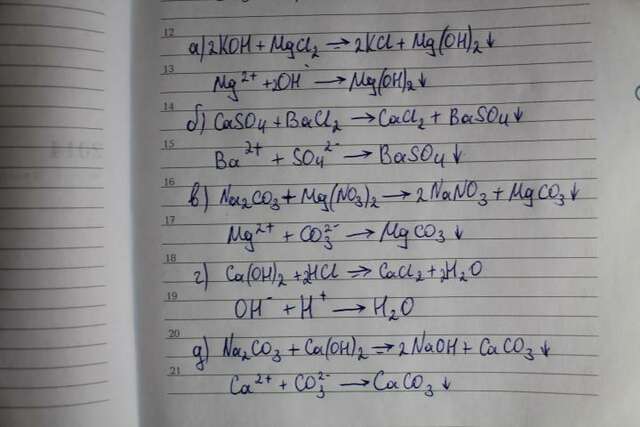 12
а) 2KOH + MgCl₂ → 2KCl + Mg(OH)₂↓
13
Mg²⁺ + 2OH⁻ → Mg(OH)₂↓
14
б) CaSO₄ + BaCl₂ → CaCl₂ + BaSO₄↓
15
Ba²⁺ + SO₄²⁻ → BaSO₄↓
16
в) Na₂CO₃ + Mg(NO₃)₂ → 2NaNO₃ + MgCO₃↓
17
Mg²⁺ + CO₃²⁻ → MgCO₃↓
18
г) Ca(OH)₂ + 2HCl → CaCl₂ + 2H₂O
19
OH⁻ + H⁺ → H₂O
20
д) Na₂CO₃ + Ca(OH)₂ → 2NaOH + CaCO₃↓
21
Ca²⁺ + CO₃²⁻ → CaCO₃↓